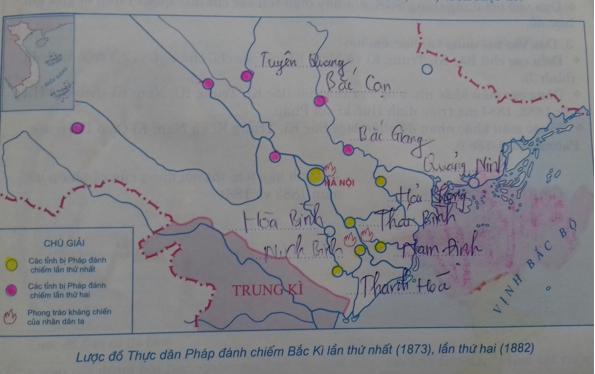 Tuyên Quang
Bắc Cạn
Bắc Giang
Quảng Ninh
HÀ NỘI
Hải Phòng
Hòa Bình
Thái Bình
Ninh Bình
Nam Định
Thanh Hoá
TRUNG KÌ
VỊNH BẮC BỘ
CHÚ GIẢI
Các tỉnh bị Pháp đánh
chiếm lần thứ nhất
Các tỉnh bị Pháp đánh
chiếm lần thứ hai
Phong trào kháng chiến
của nhân dân ta
Lược đồ Thực dân Pháp đánh chiếm Bắc Kì lần thứ nhất (1873), lần thứ hai (1882)